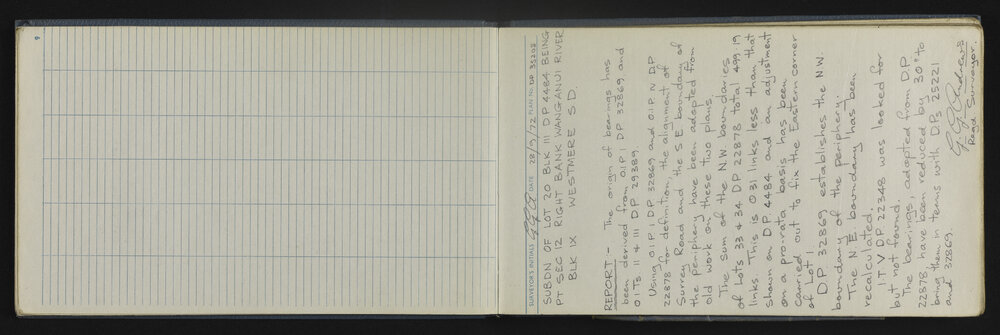 SURVEYOR'S INITIALS GGA DATE 28/9/72 PLAN NO. DP 35208
SUBDN OF LOT 20 BLK III DP 4484 BEING
PT SEC 12 RIGHT BANK WANGANUI RIVER
BLK IX WESTMERE S D.
REPORT - The origin of bearings has
been derived from OIP I DP 32869 and
OITs II & III DP 29389.
Using OIP I DP 32869 and OIP N DP
22878 for definition, the alignment of
Surrey Road and the S E boundary of
the periphery have been adopted from
old work on these two plans.
The sum of the N.W boundaries
of Lots 33 & 34 DP 22878 total 499.19
links. This is 0.31 links less than that
shown on DP 4484 and an adjustment
on a pro-rata basis has been
carried out to fix the Eastern corner
of Lot 1
DP 32869 establishes the N.W.
boundary of the periphery.
The N E boundary has been
recalculated.
IT V DP 22348 was looked for
but not found.
The bearings, adopted from DP
22878, have been reduced by 30" to
bring them in terms with DPs 25221
and 32869.
G. G. Andrews
Regd Surveyor.